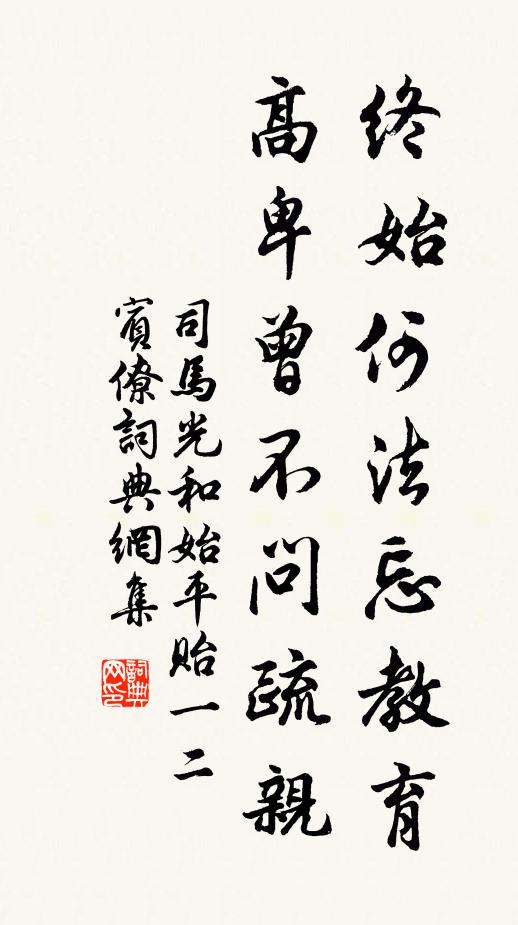 終始何法忘教育
高卑曾不問疏親
司馬光和始平貽一二
賓僚詞典網集
詞典网印